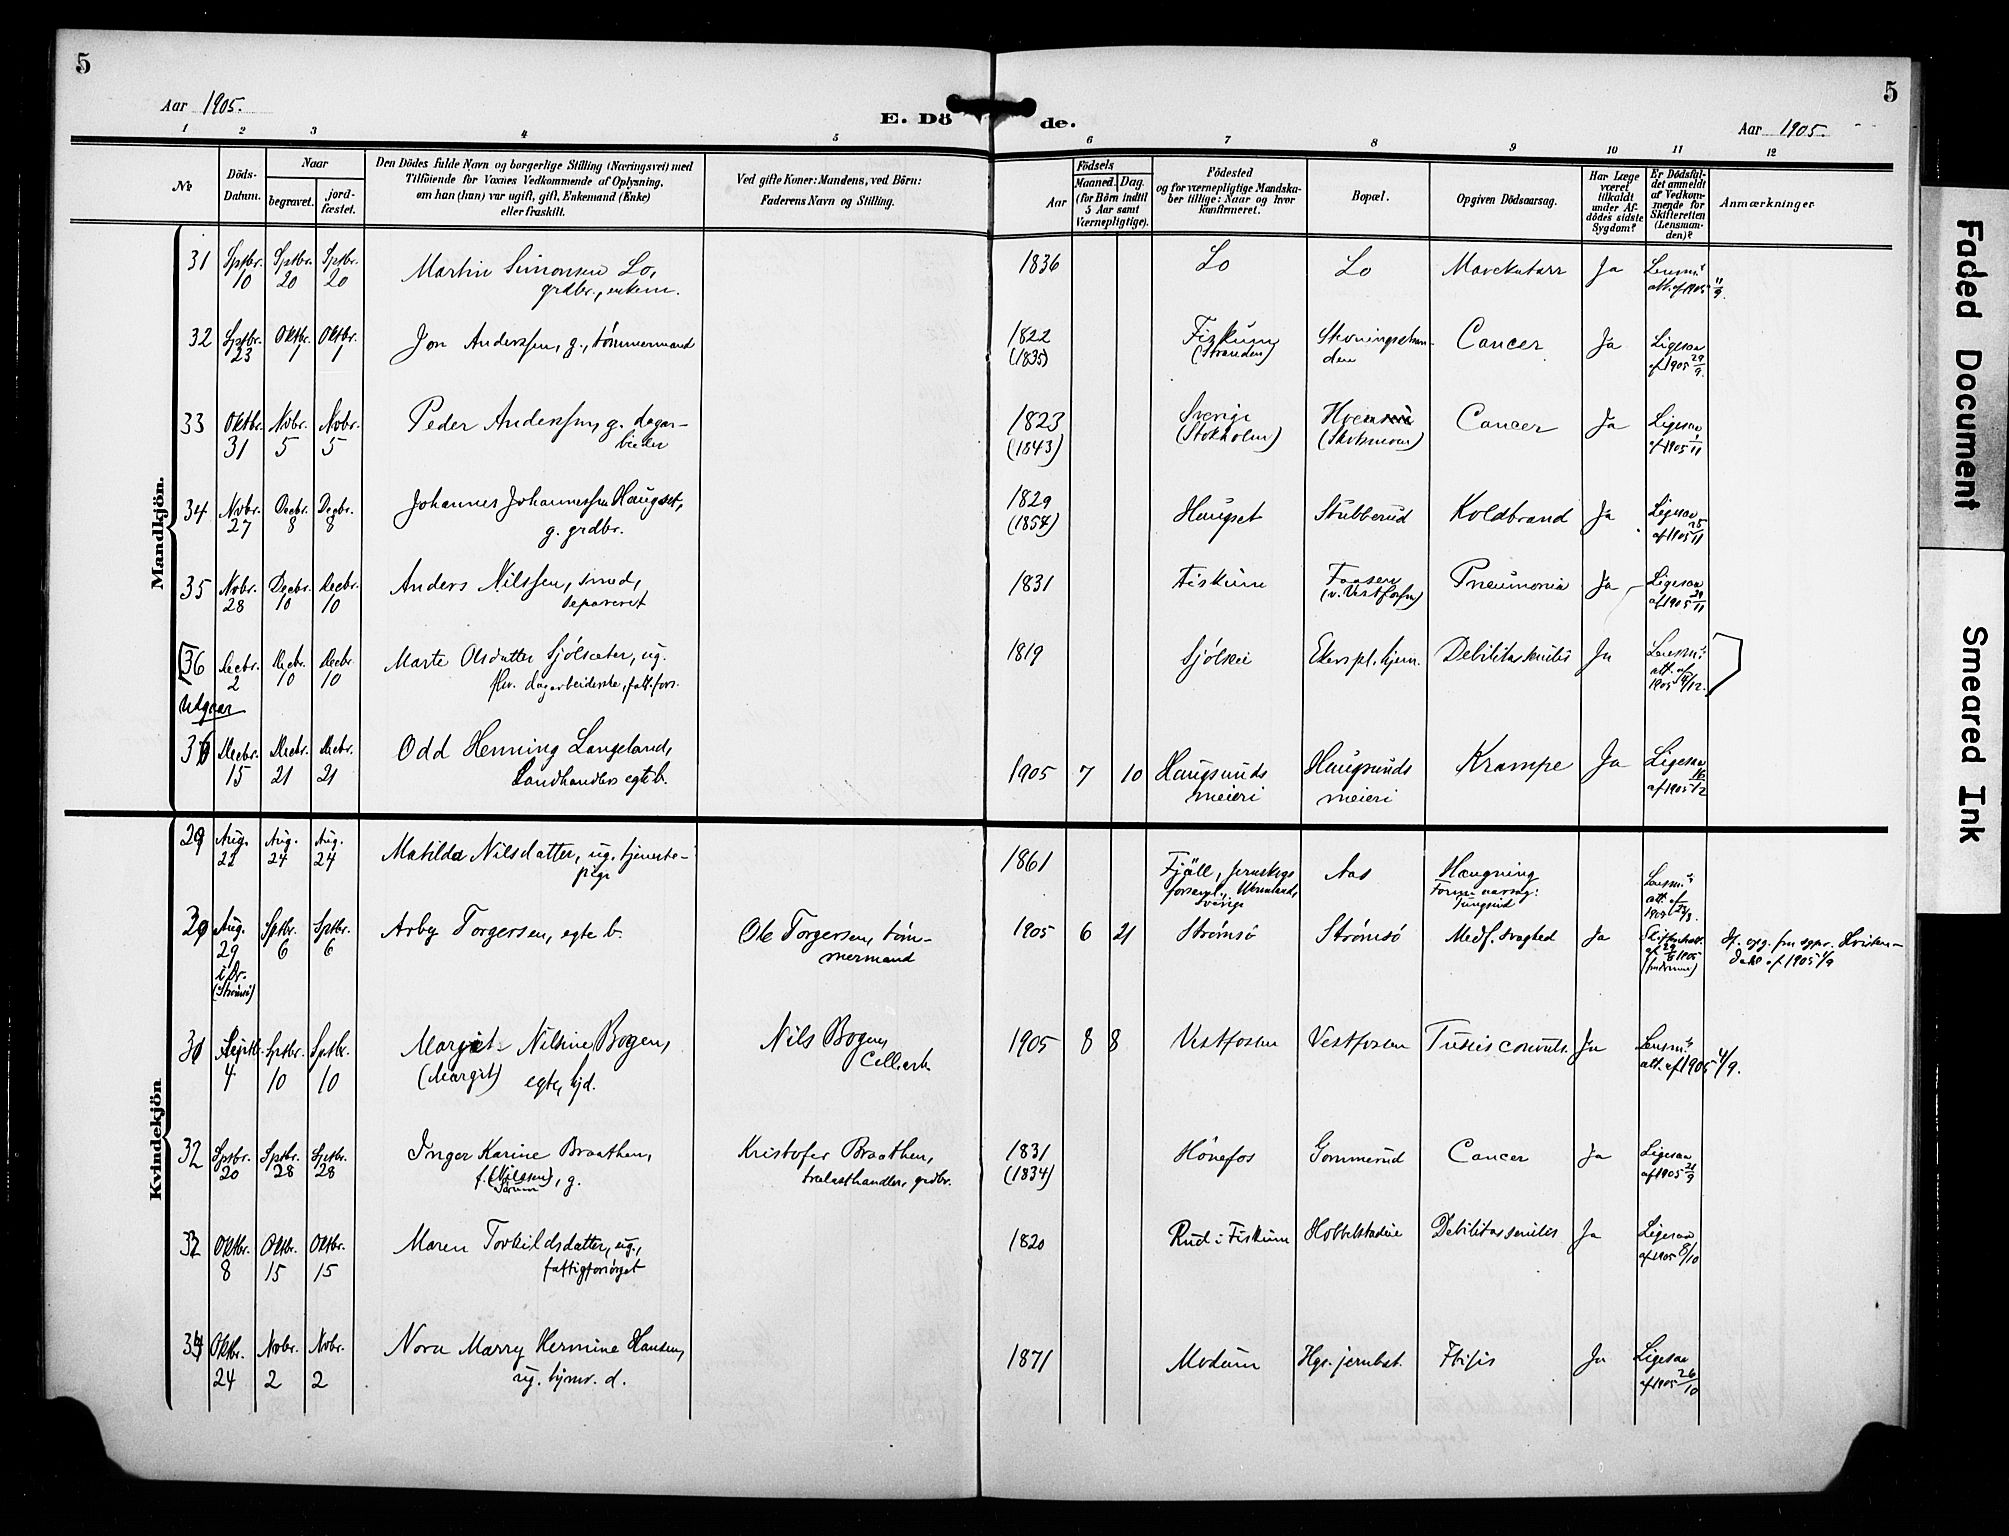 5
5
Aar 1905.
E. Dö de.
Aar 1905.
1 2 3 4 5 6 7 8 9 10 11 12
No
Döds-Datum.
Naar
begravet.
jord-fæstet.
Den Dödes fulde Navn og borgerlige Stilling (Næringsvei) med
Tilföiende for Voxnes Vedkommende af Oplysning,
om han (hun) var ugift, gift, Enkemand (Enke)
eller fraskilt.
Ved gifte Koner: Mandens, ved Börn:
Faderens Navn og Stilling.
Födsels
Aar
Maaned.
Dag.
(for Börn indtil
5 Aar samt
Værnepligtige).
Födested
og for værnepligtige Mandska-
ber tillige: Naar og hvor
konfirmeret.
Bopæl.
Opgiven Dödsaarsag.
Har Læge
været
tilkaldt
under Af-
dödes sidste
Sygdom?
Er Dödsfal-
det anmeldt
af Vedkom-
mende for
Skifteretten
(Lensman-
den)?
Anmærkninger
Mandkjön.
31 Sptbr. 10 Sptbr. 20 Sptbr. 20 Martin Simonsen Lo, 1836 Lo Lo Mavekatarr Ja Lensm.s
grdbr., enkem. att. af 1905 11/9.
32 Sptbr. 23 Oktbr. 1 Oktbr. 1 Jon Anderssen, g., tømmermand 1822 Fiskum Cancer Ja Ligesaa
(1835) (Stranden) af 1905 29/9.
33 Oktbr. 31 Nvbr. 5 Nvbr. 5 Peder Anderssen, g. dagar- 1823 Sverige Cancer Ja Ligesaa
beider (1843) (Stokholm) af 1905 1/11
34 Nvbr. 27 Decbr. 8 Decbr. 8 Johannes Johannessen Haugset, 1829 Haugset Stubberud Koldbrand Ja Ligesaa
g. grdbr. (1854) af 1905 25/11
35 Nvbr. 28 Decbr. 10 Decbr. 10 Anders Nilssen, smed, 1831 Fiskum Pneumonia Ja Ligesaa
separeret (v. Vestfossen) af 1905 29/11
36 Decbr. 2 Decbr. 10 Decbr. 10 Marte Olsdatter Sjölsæter, ug. 1819 Ekers pl. hjem. Debilitas senilis Ja Lensm.s
fhv. dagarbeiderske, fatt. fors. att. af 1905
Utgaar
36 Decbr. 15 Decbr. 21 Decbr. 21 Odd Henning Langeland, 1905 7 10 Haugsunds Haugsunds Krampe Ja Ligesaa
Landhandlers egte b. meieri meieri af 1905 16/12
Kvindekjön
29 Aug. 22 Aug. 24 Aug. 24 Matilda Nilsdatter, ug. tjeneste- 1861 Fjäll, Aas Hængning Lensm.s
pige Sverige Tungsind
30 Aug. 29 Sptbr. 6 Sptbr. 6 Arby Torgersen, egte b. Ole Torgersen, tøm- 1905 6 21 Strømsö Strømsö Medf. svaghed Ja
i Dr. (Strømsö) mermand
31 Septbr. 4 Sptbr. 10 Sptbr. 10 Margit Nilsine Bogen, Nils Bogen, 1905 8 8 Vestfossen Vestfossen Tussis convuls. Ja Lensm.s
(Margit) egte, hjd. Cell.arb. att. af 1905 4/9.
32 Sptbr. 20 Sptbr. 28 Sptbr. 28 Inger Karine Braathen, Kristofer Braathen, 1831 Hönefos Gommerud Cancer Ja Ligesaa
f. (Nilssen), g. trælasthandler, grdbr. (1834) af 1905 21/9
33 Oktbr. 8 Oktbr. 15 Oktbr. 15 Maren Torkildsdatter, ug., 1820 Rud i Fiskum Hobbelstadeie Debilitas senilis Ja Ligesaa
fattigforsörget af 1905 9/10
34 Oktbr. 24 Nvbr. 2 Nvbr. 2 Nora Marry Hermine Hansen, 1871 Modum Hgs. jernbst. Ftisis Ja Ligesaa
ug. hjmv. d. af 1905 26/10
Faded Document
Smeared Ink